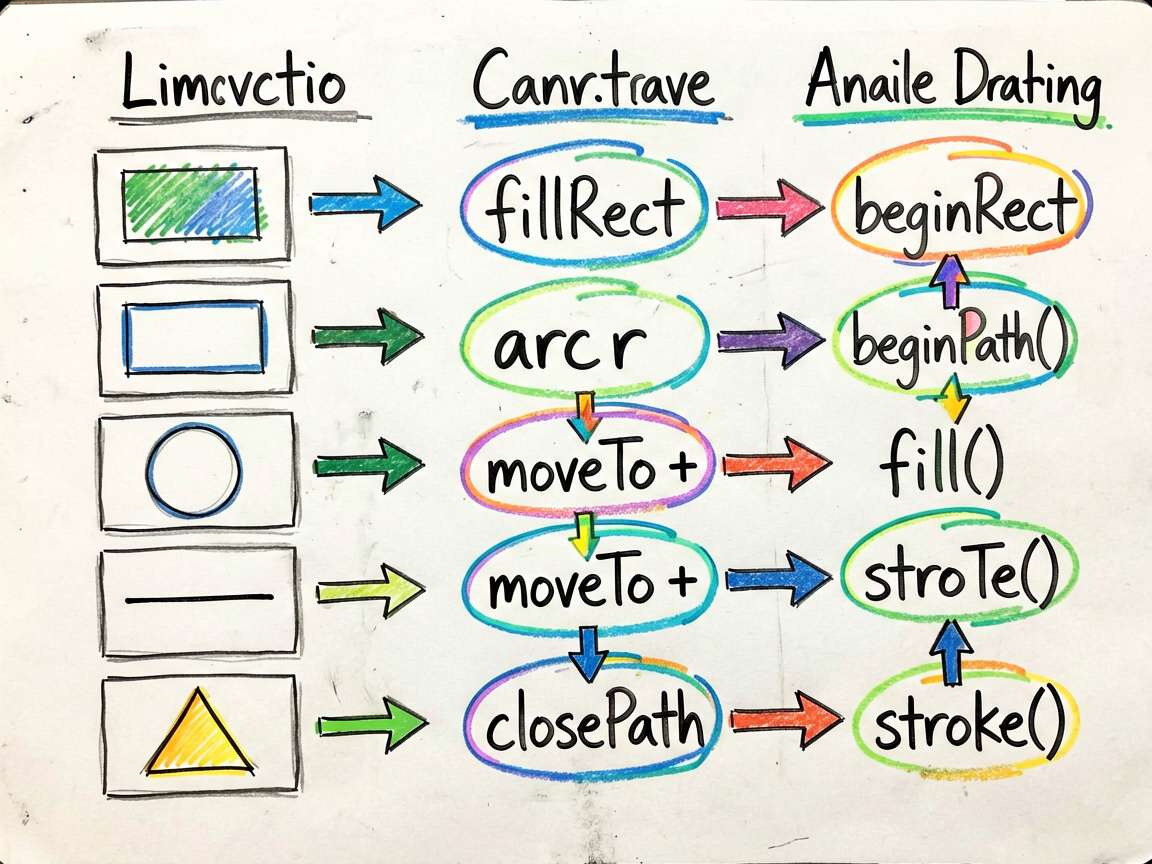 Limcvctio
Canr.trave
Anaile Drating
fillRect
beginRect
arc r
beginPath()
moveTo +
fill()
moveTo +
stroTe()
closePath
stroke()